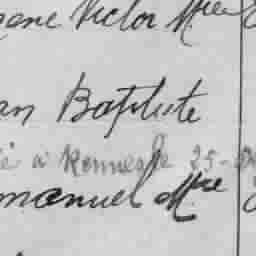 ène Victor Mle
an Baptiste
é à Rennes le 25-
manuel Mie